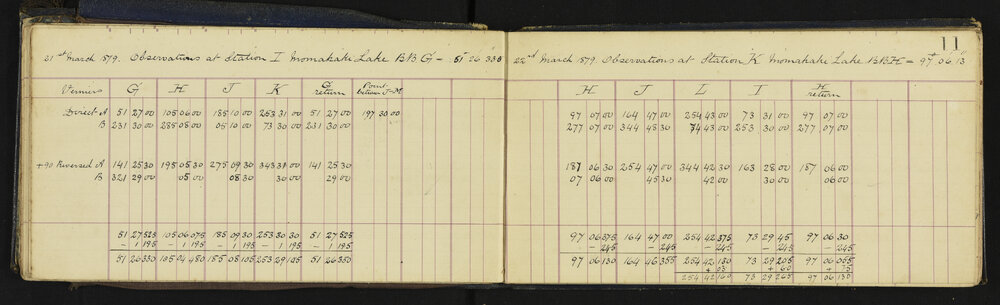 11
21st March 1879. Observations at Station I Momahaki Lake BB G = 51° 26 33.0
Verniers G H J K G return Point between J-H
Direct A 51 27 00 105 06 00 185 10 00 253 31 00 51 27 00 197 30 00
B 231 30 00 285 08 00 05 10 00 73 30 00 231 30 00
+90 Reversed A 141 25 30 195 05 30 275 09 30 343 31 00 141 25 30
B 321 29 00 05 00 08 30 30 00 29 00
51 27 52.5 105 06 07.5 185 09 30 253 30 30 51 27 52.5
- 1 19.5 - 1 19.5 - 1 19.5 - 1 19.5 - 1 19.5
51 26 33.0 105 04 48.0 185 08 10.5 253 29 10.5 51 26 33.0
22nd March 1879. Observations at Station K Momahaki Lake BB H = 97° 06 13"
H J L I H return
97 07 00 164 47 00 254 43 00 73 31 00 97 07 00
277 07 00 344 48 30 74 43 00 253 30 00 277 07 00
187 06 30 254 47 00 344 42 30 163 28 00 187 06 00
07 06 00 45 30 42 00 30 00 06 00
97 06 37.5 164 47 00 254 42 37.5 73 29 45 97 06 30
- 24.5 - 24.5 - 24.5 - 24.5 - 24.5
97 06 13.0 164 46 35.5 254 42 13.0 73 29 20.5 97 06 05.5
+ 03 + 60 + 75
254 42 16.0 73 29 26.5 97 06 13.0